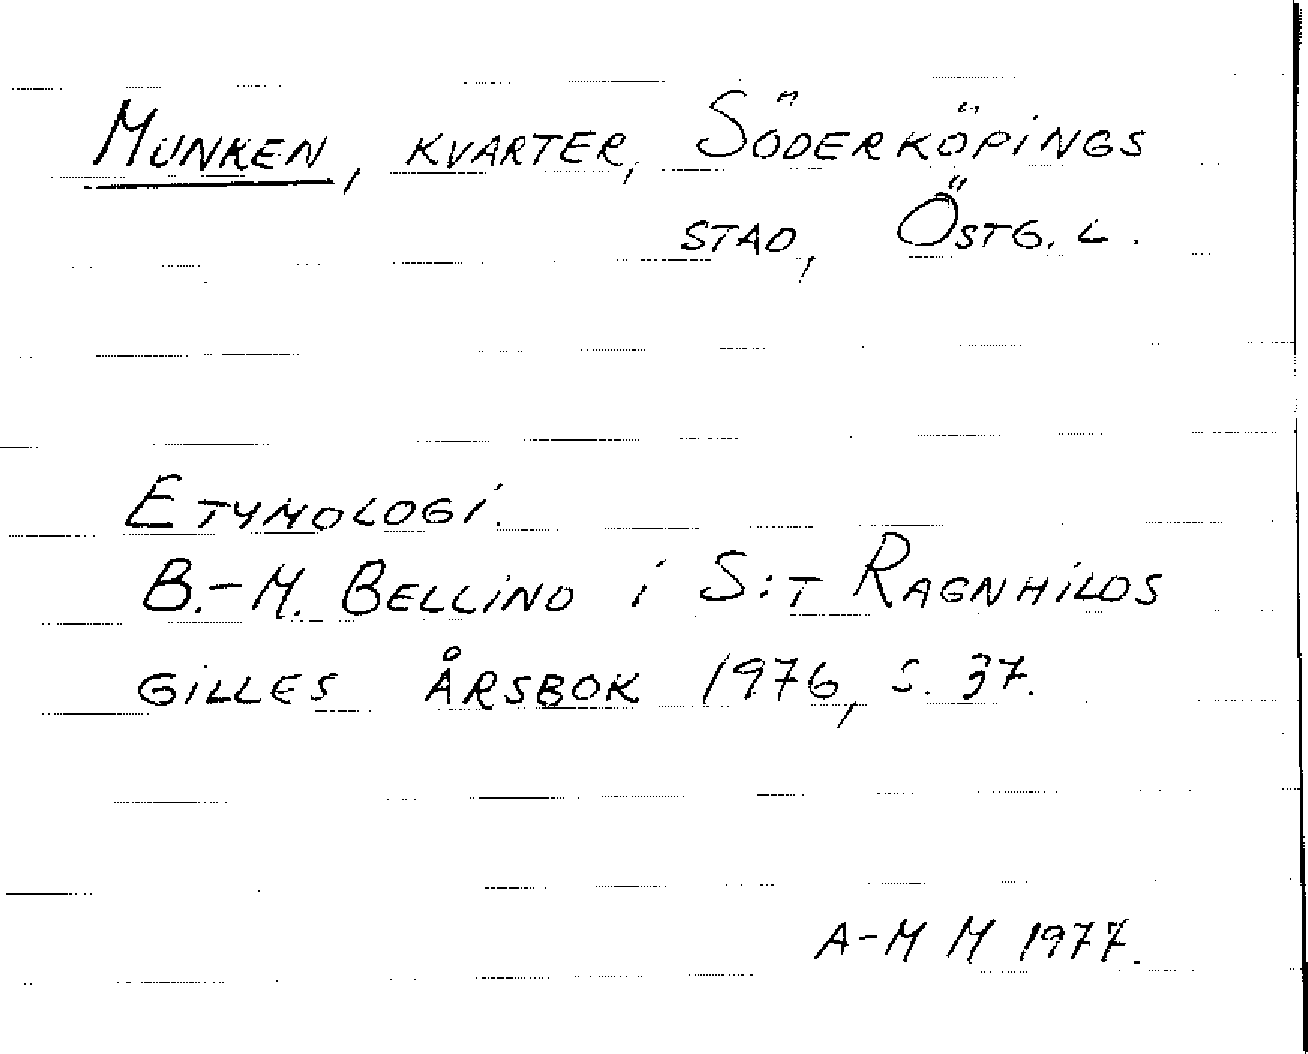 MUNKEN, KVARTER, SÖDERKÖPINGS
STAD, ÖSTG. L.
ETYMOLOGI.
B.-M. BELLIND i S:T RAGNHILDS
GILLES ÅRSBOK 1976, S. 37.
A-M M 1977.